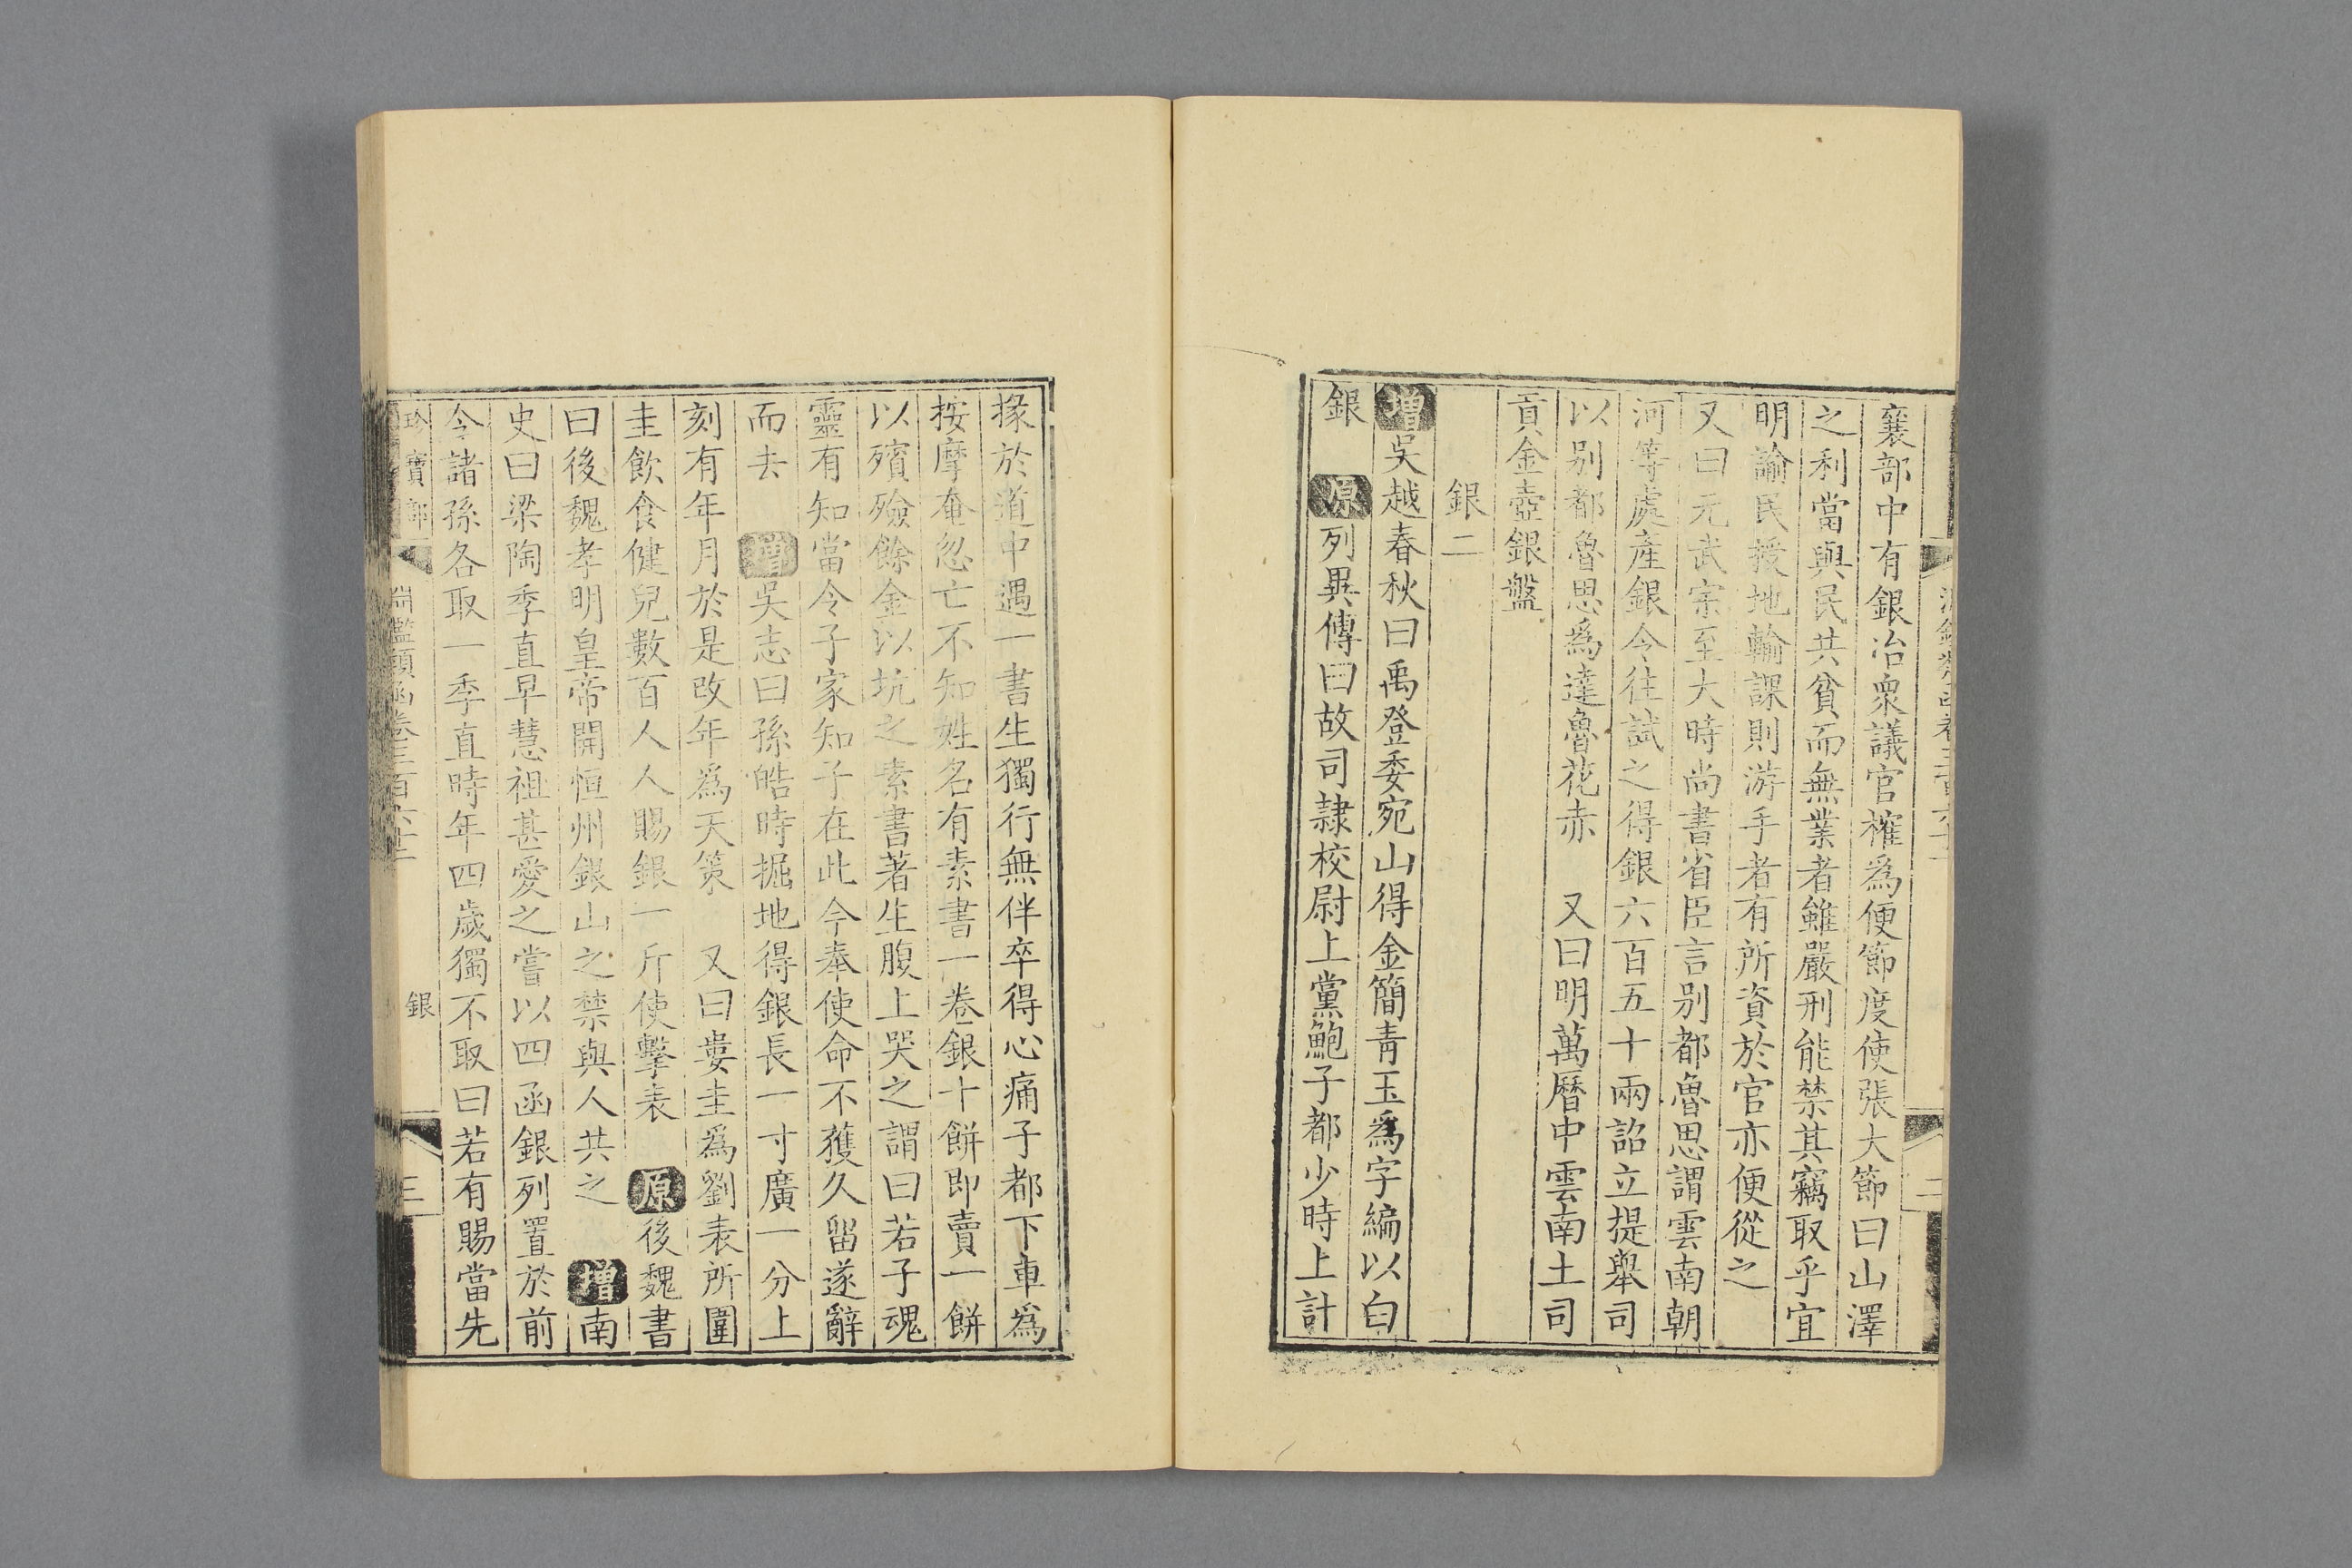 襄部中有銀冶衆議官榷爲便節度使張大節曰山澤
之利當與民共貧而無業者雖嚴刑能禁其竊取乎宜
明諭民授地輸課則游手者有所資於官亦便從之
又曰元武宗至大時尚書省臣言别都魯思謂雲南朝
河等處產銀令往試之得銀六百五十兩詔立提舉司
以别都魯思爲達魯花赤 又曰明萬曆中雲南土司
貢金壺銀盤
銀二
增吳越春秋曰禹登委宛山得金簡青玉爲字編以白
銀 原列異傳曰故司隷校尉上黨鮑子都少時上計
掾於道中遇一書生獨行無伴卒得心痛子都下車爲
按摩奄忽亡不知姓名有素書一卷銀十餅即賣一餅
以殯殮餘金以坑之素書著生腹上哭之謂曰若子魂
靈有知當令子家知子在此今奉使命不獲久留遂辭
而去 增吳志曰孫皓時掘地得銀長一寸廣一分上
刻有年月於是改年爲天策 又曰婁圭爲劉表所圍
圭飲食健兒數百人人賜銀一斤使擊表 原後魏書
曰後魏孝明皇帝開恒州銀山之禁與人共之 增南
史曰梁陶季直早慧祖甚愛之嘗以四函銀列置於前
令諸孫各取一季直時年四歲獨不取曰若有賜當先
珍寶部 淵鑑類函卷三百六十二 銀 三